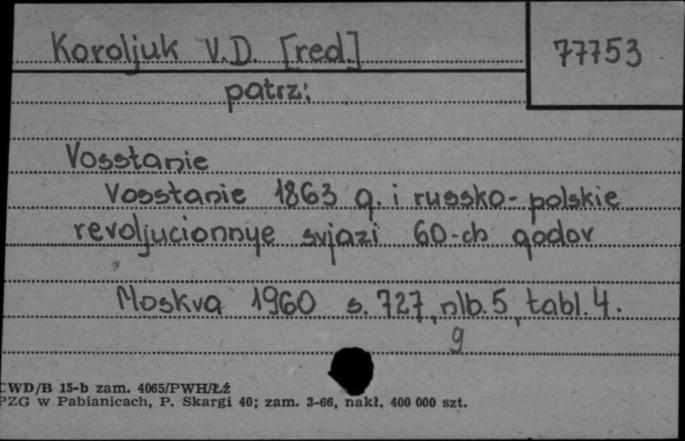 Koroljuk V.D. [red.]
77753
patrz:
Vosstanie
Vosstanie 1863 g. i russko-polskie
revoljucionnye svjazi 60-ch godov
Moskva 1960 s. 727, nlb. 5, tabl. 4.
9
CWD/B 15-b zam. 4065/PWH/Łź
PZG w Pabianicach, P. Skargi 40; zam. 3-66, nakł. 400 000 szt.